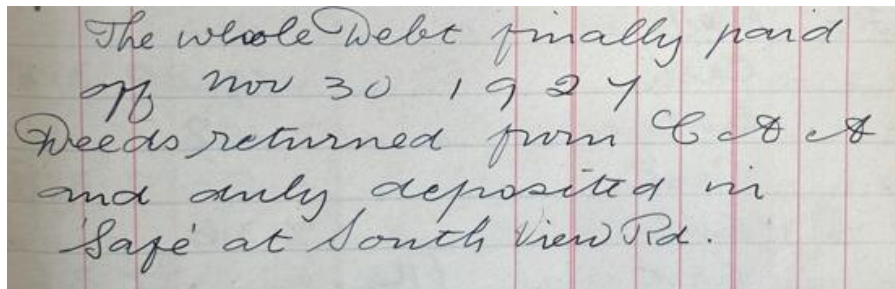 The whole Debt finally paid
off Nov 30 1927
Deeds returned from C A A
and duly deposited in
'Safe' at South View Rd.